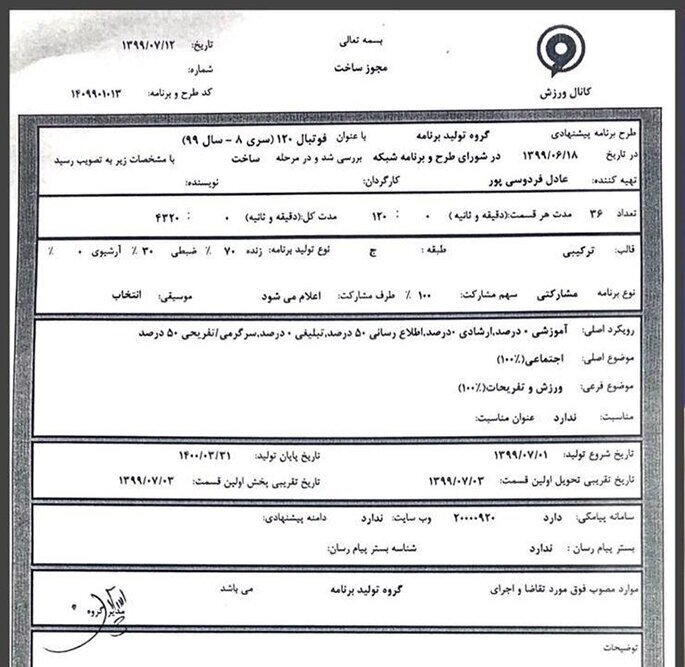 بسمه تعالی
مجوز ساخت
تاریخ: ۱۳۹۹/۰۷/۱۲
شماره:
کد طرح و برنامه: ۱۴۰۹۹۰۱۰۱۳
کانال ورزش
طرح برنامه پیشنهادی گروه تولید برنامه با عنوان فوتبال ۱۲۰ (سری ۸ - سال ۹۹)
در تاریخ ۱۳۹۹/۰۶/۱۸ در شورای طرح و برنامه شبکه بررسی شد و در مرحله ساخت با مشخصات زیر به تصویب رسید
تهیه کننده: عادل فردوسی پور کارگردان: نویسنده:
تعداد ۳۶ مدت هر قسمت:(دقیقه و ثانیه) ۰ : ۱۲۰ مدت کل:(دقیقه و ثانیه) ۰ : ۴۳۲۰
قالب: ترکیبی طبقه: ج نوع تولید برنامه: زنده ۷۰ ٪ ضبطی ۳۰ ٪ آرشیوی ۰ ٪
نوع برنامه مشارکتی سهم مشارکت: ۱۰۰ ٪ طرف مشارکت: اعلام می شود موسیقی: انتخاب
رویکرد اصلی: آموزشی ۰ درصد,ارشادی ۰درصد,اطلاع رسانی ۵۰ درصد,تبلیغی ۰ درصد,سرگرمی/تفریحی ۵۰ درصد
موضوع اصلی: اجتماعی(۱۰۰٪)
موضوع فرعی: ورزش و تفریحات(۱۰۰٪)
مناسبت: ندارد عنوان مناسبت:
تاریخ شروع تولید: ۱۳۹۹/۰۷/۰۱ تاریخ پایان تولید: ۱۴۰۰/۰۳/۳۱
تاریخ تقریبی تحویل اولین قسمت: ۱۳۹۹/۰۷/۰۳ تاریخ تقریبی پخش اولین قسمت: ۱۳۹۹/۰۷/۰۳
سامانه پیامکی: دارد ۲۰۰۰۰۹۲۰ وب سایت: ندارد دامنه پیشنهادی:
بستر پیام رسان : ندارد شناسه بستر پیام رسان:
موارد مصوب فوق مورد تقاضا و اجرای گروه تولید برنامه می باشد
مدیر گروه
توضیحات